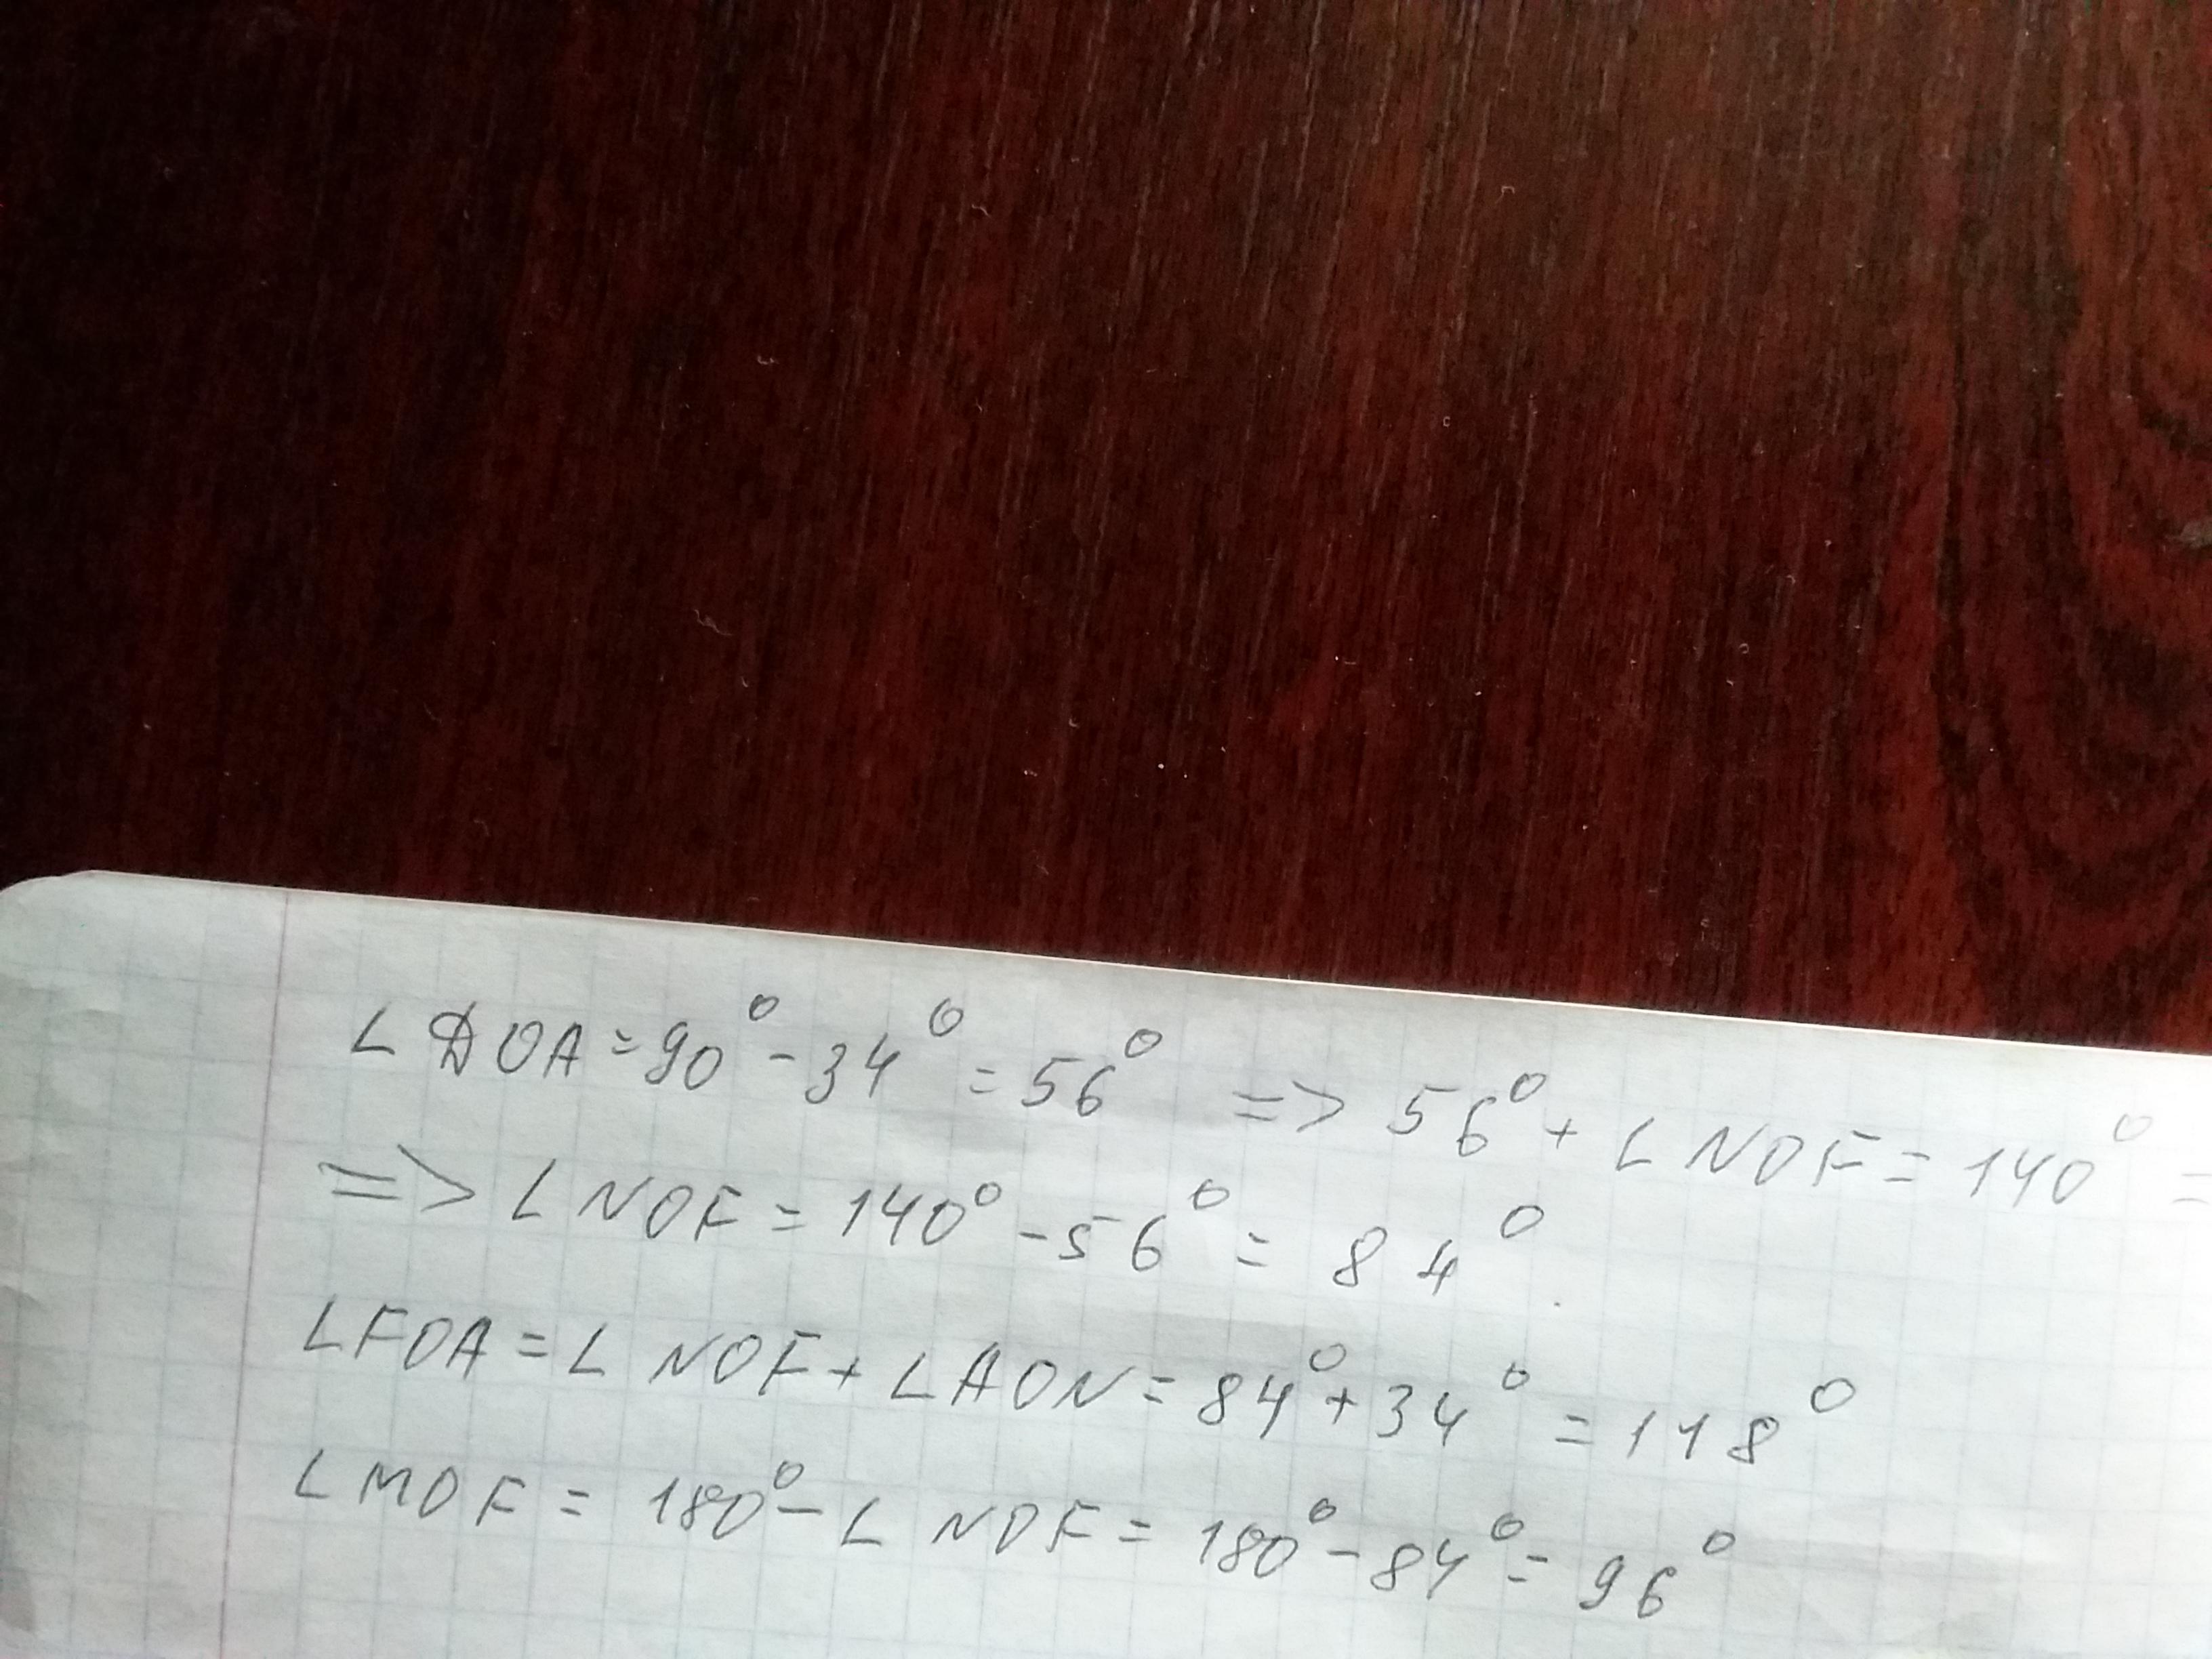 ∠DOA=90°-34°=56° => 56°+∠NOF=140° =
=> ∠NOF=140°-56°=84°.
∠FOA=∠NOF+∠AON=84°+34°=118°
∠MOF=180°-∠NOF=180°-84°=96°